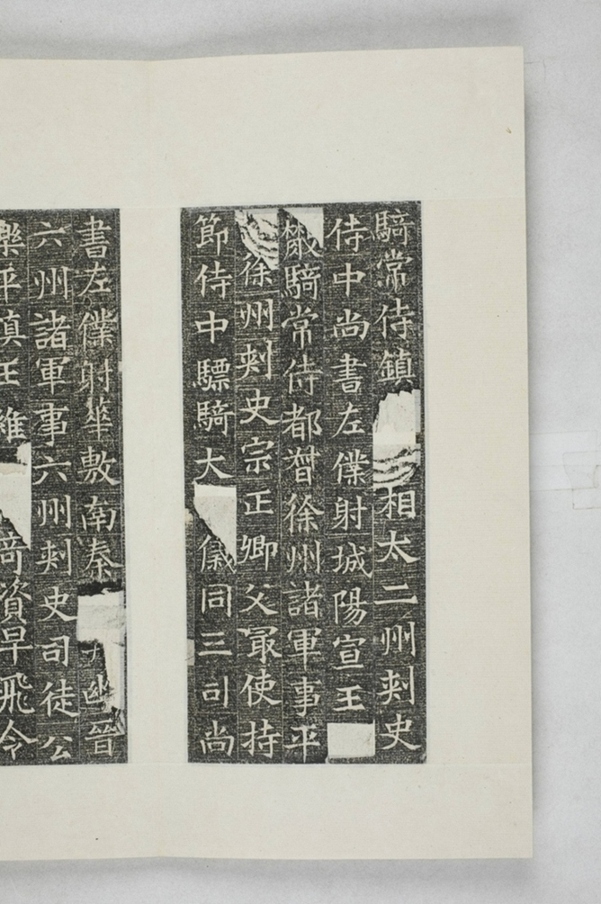 騎常侍鎮相太二州刾史
侍中尚書左僕射城陽宣王
騎常侍都督徐州諸軍事平
徐州刾史宗正卿父冣使持
節侍中驃騎大儀同三司尚
書左僕射華敷南秦幽晉
六州諸軍事六州刾史司徒公
樂平慎王維奇資早飛令